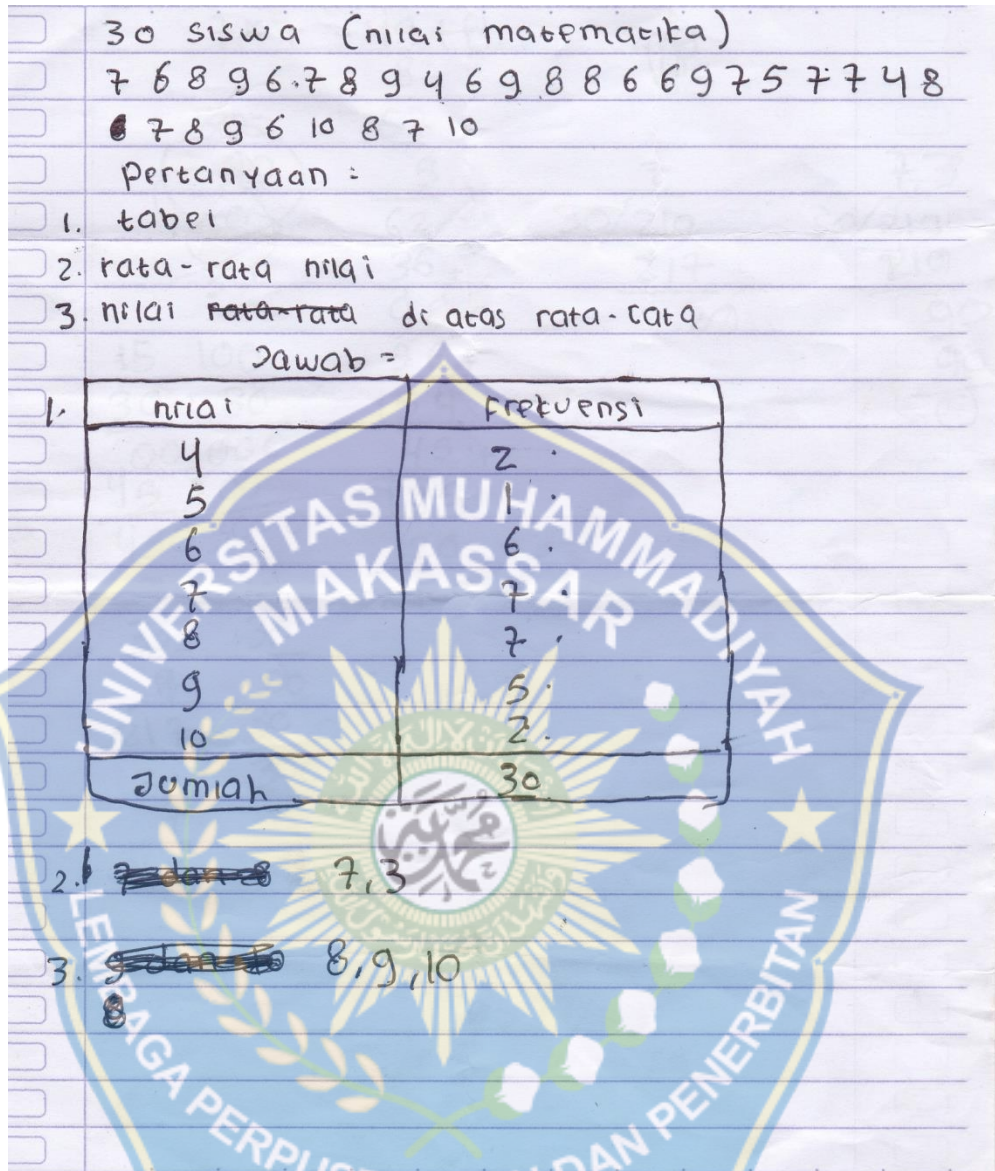 30 siswa (nilai matematika)
7 6 8 9 6.7 8 9 4 6 9 8 8 6 6 9 7 5 7 7 4 8
7 8 9 6 10 8 7 10
Pertanyaan :
1. tabel
2. rata-rata nilai
3. nilai rata-rata di atas rata-rata
Jawab =
1. nilai frekuensi
4 2
5 1
6 6
7 7
8 7
9 5
10 2
Jumlah 30
2. 7,3
3. 8,9,10
8
UNIVERSITAS MUHAMMADIYAH
MAKASSAR
LEMBAGA PERPUS DAN PENERBITAN